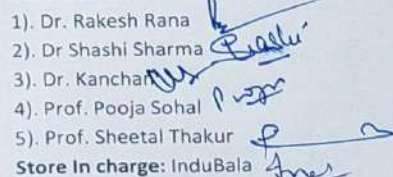 1). Dr. Rakesh Rana
2). Dr Shashi Sharma Shashi
3). Dr. Kanchan
4). Prof. Pooja Sohal
5). Prof. Sheetal Thakur
Store In charge: InduBala